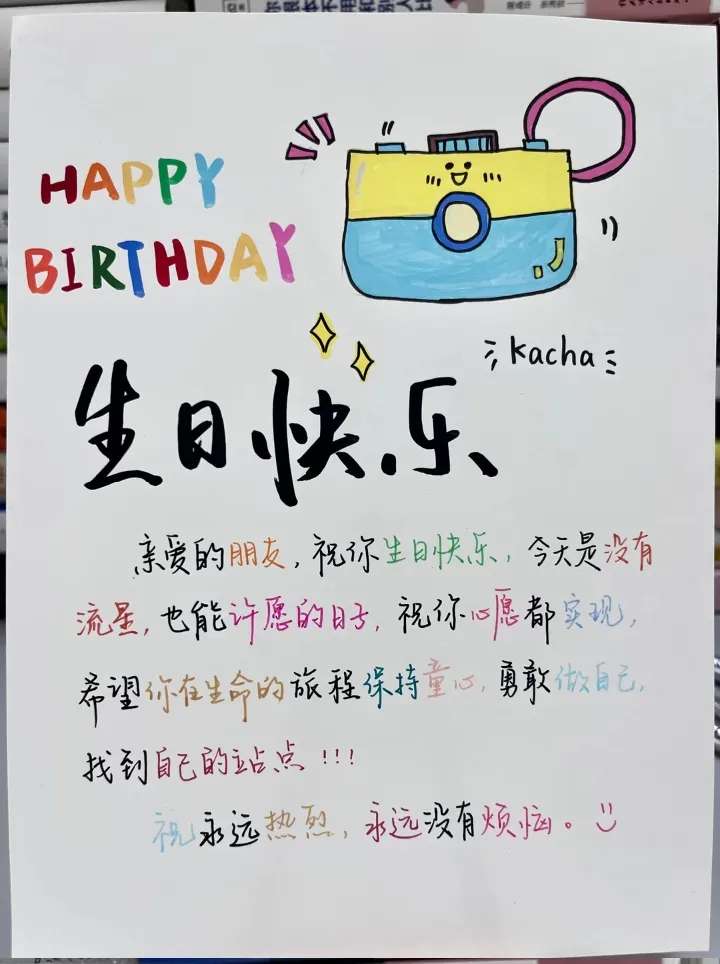 你根本不用和别人比
HAPPY
BIRTHDAY
kacha
生日快乐
亲爱的朋友,祝你生日快乐,今天是没有
流星,也能许愿的日子,祝你心愿都实现,
希望你在生命的旅程保持童心,勇敢做自己,
找到自己的站点!!!
祝永远热烈,永远没有烦恼。